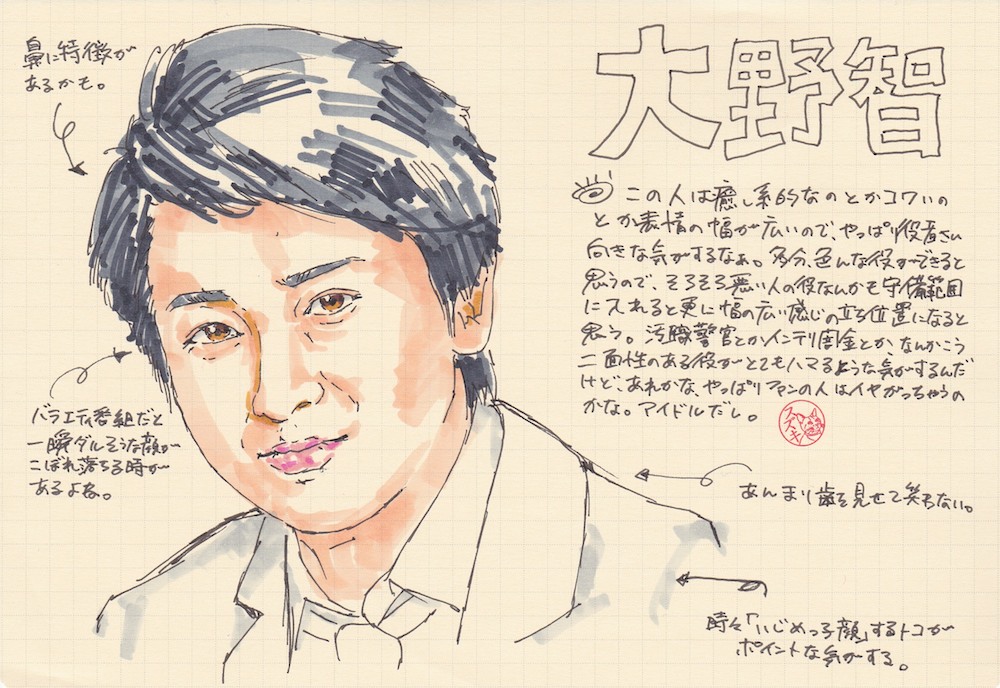 大野智
鼻に特徴が
あるかも。
この人は癒し系的なのとかコワいの
とか表情の幅が広いので、やっぱり役者さん
向きな気がするなぁ。多分、色んな役ができると
思うので、そろそろ悪い人の役なんかも守備範囲
に入れると更に幅の広い感じの立ち位置になると
思う。汚職警官とかインテリ闇金とか、なんかこう
二面性のある役がとてもハマるような気がするんだ
けど、あれかな、やっぱりファンの人はイヤがっちゃうの
かな。アイドルだし。
スズキ
バラエティ番組だと
一瞬ダルそうな顔が
こぼれ落ちる時が
あるよな。
あんまり歯を見せて笑わない。
時々「いじめっ子顔」するトコが
ポイントな気がする。